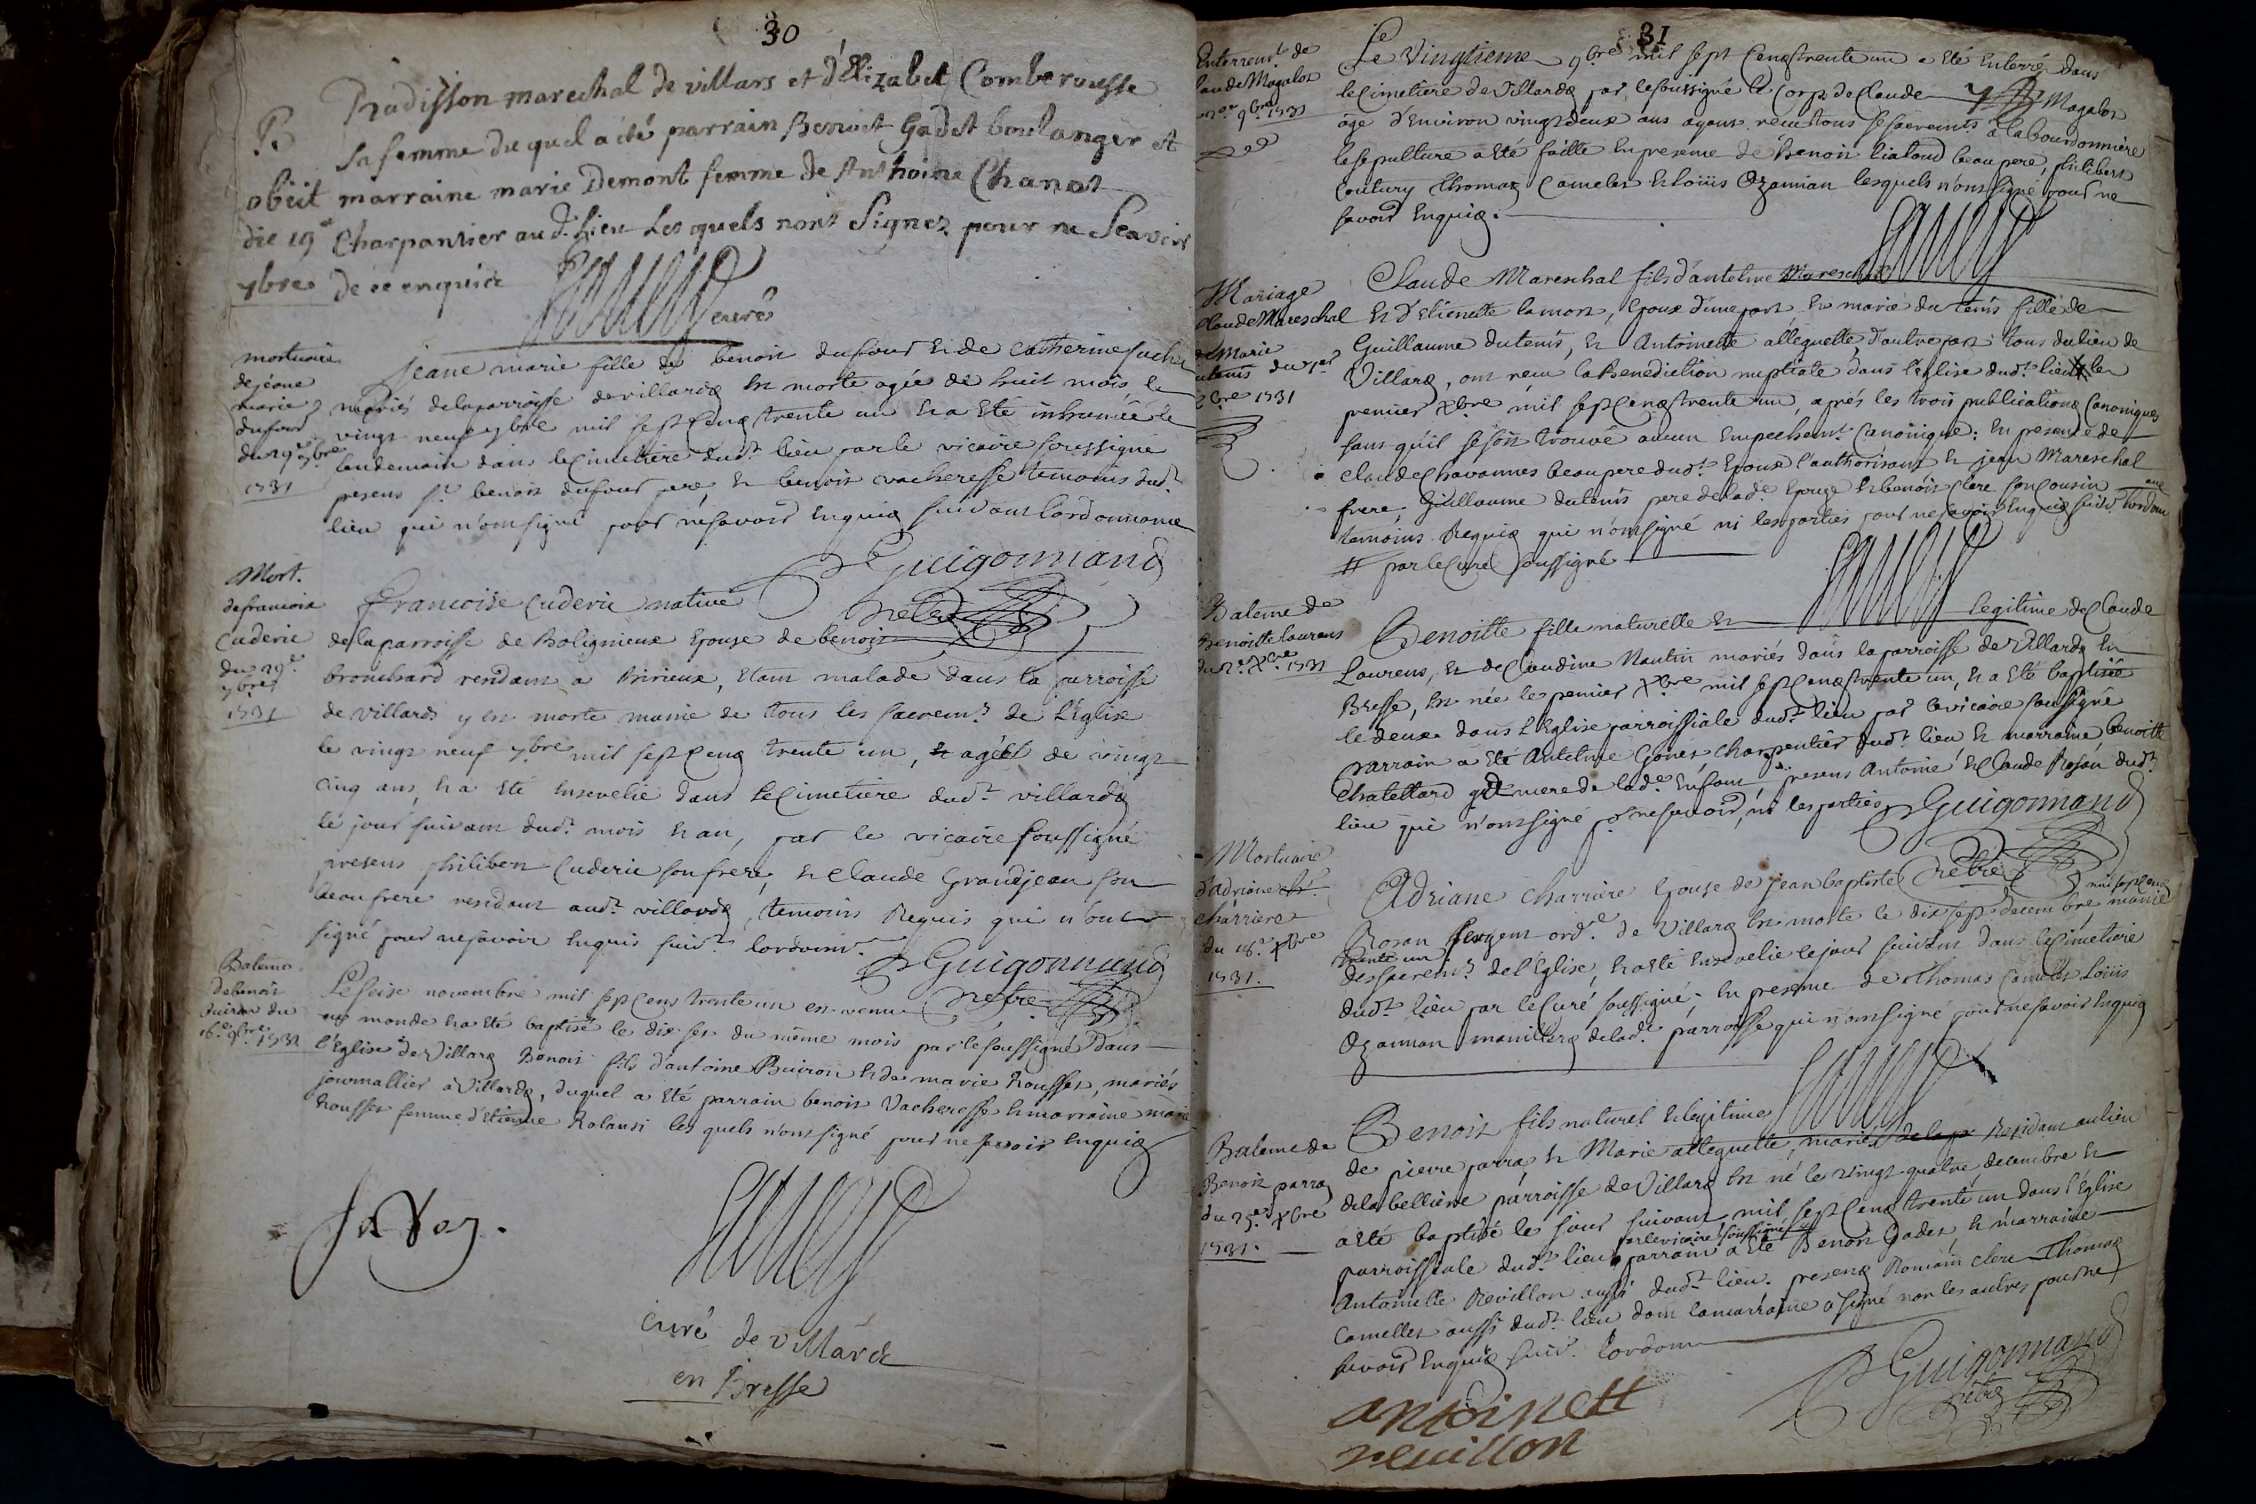 30
Pradisson marechal de villars et d'Elizabet Comberousse
sa femme du quel a été parrain Benoit Gadet boulanger et
marraine marie Demont femme de Anthoine Chanat
Charpantier aud. lieu Les quels nont Signez pour ne Scavoir
de ce enquis
obiit
die 19e
7bre
curé
mortuaire
de jeane
marie
dufour
du 29e 7bre
1731
jeane marie fille de benoit dufour et de catherine
mariés de la parroisse de villards est morte agée de huit mois le
vingt neuf 7bre mil sept cens trente un et a été inhumée le
lendemain dans le cimetiere dudt lieu par le vicaire soussigné
presens st benoit dufour pere, et benoit vacheresse temoins dudt
lieu qui n'ont signé pour ne savoir enquis suivant l'ordonnance
Guigonnand
prêtre
Mort.
de francoise
Cuderie
du 29e
7bre
1731
Francoise Cuderie native
de la parroisse de Bolignieux epouse de benoit
brouchard residant a Birieux, etant malade dans la parroisse
de villards y est morte munie de tous les sacremts de L'Eglise
le vingt neuf 7bre mil sept cens trente un, agée de vingt
cinq ans, et a été ensevelie dans le cimetiere dudt villards
le jour suivant dudt mois et an, par le vicaire soussigné
presens philibert Cuderie son frere, et Claude Grandjean son
beau frere residant audt villards, temoins requis qui n'ont
signé pour ne savoir enquis suivt l'ordonnce
Guigonnand
prêtre
Bateme
de benoit
buiron du
16e 9bre 1731
Le seise novembre mil sept cens trente un est venu
au monde et a été baptisé le dix sept du même mois par le soussigné dans
l'Eglise de Villars Benoit fils d'antoine Buiron et de marie Rousset, mariés
journallier à Villards, duquel a été parrain benoit Vacheresse et marraine marie
Rousset femme d'etienne Rolansi les quels n'ont signé pour ne savoir enquis
curé de villards
en Bresse
31
Enterremt de
Claude Magalon
9bre 1731
Le Vingtieme 9bre mil sept cens trente un a été enterré dans
le cimetiere de Villards par le soussigné le corps de Claude Magalon
age d'environ vingt deux ans ayant recu tous ses sacremts a la bourdonnière
la sepulture a été faitte en presence de Benoit liatoud beau pere, philibert
Coutury Thomas Camelet et Loüis Ozamian lesquels n'ont signé pour ne
savoir enquis.
Mariage
Claude Mareschal
et Marie
dutents du 1er
xbre 1731
Claude Mareschal fils d'antelme Mareschal
et d'Etienette lamort, epoux d'une part et marie dutents fille de
Guillaume dutents, et Antoinette alleguette, d'autre part tous du lieu de
Villards, ont recu la Benediction nuptiale dans l'eglise dudt lieu # le
premier xbre mil sept cens trente un, après les trois publications Canoniques
sans qu'il se soit trouvé aucun empechemt Canonique: en presence de
claude chavannes beau pere dudt Epoux l'authorisant et jean Mareschal
frere, Guillaume dutents pere de lade Epouse et benoit Clere son cousin
temoins Requis qui n'ont signé ni les parties pour ne savoir enquis suivt l'ordonn
# par le Curé soussigné
Bateme de
Benoitte laurens
du 2e xbre 1731
Benoitte fille naturelle et legitime de Claude
Laurens, et de Claudine Nantin mariés dans la parroisse de Villards en
Bresse, est née le premier xbre mil sept cens trente un, et a été baptisée
le deux dans L'Eglise parroissiale dudt lieu par le vicaire soussigné
parrain a été Antelme Gonet, charpentier dudt lieu et marraine benoitte
Chatellard gd mere de lade enfant, presens Antoine et Claude Rosan dudt
lieu qui n'ont signé pr ne savoir, ni les parties
Guigonnand
prêtre
Mortuaire
d'adriane
charriere
du 18e xbre
1731.
Adriane charriere Epouse de jean baptiste
Rosan sergent ordre de Villars est morte le dix sept decembre mil sept cens
trente un munie
des sacremts de l'Eglise, et a été ensevelie le jour suivant dans le cimetiere
dudt lieu par le Curé soussigné; en presence de Thomas Camelet Loüis
Ozamian manilliers de lade parroisse qui n'ont signé pour ne savoir enquis
Bateme de
Benoit parra
du 25e xbre
1731.
Benoit fils naturel et legitime
de pierre parra, et Marie alleguette, mariés residant au lieu
de la belliere parroisse de Villars est né le vingt quatre decembre et
a été baptisé le jour suivant mil sept cens trente un dans l'Eglise
parroissiale dudt lieu par le vicaire soussigné parrain a été Benoit Gadet, et marraine
Antoinette Revillon aussi dudt lieu. presens Romain Clere Thomas
Camellet aussi dudt lieu dont la marraine a signé non les autres pour ne
savoir enquis suivt l'ordonn
Guigonnand
prêtre
antoinett
reuillon